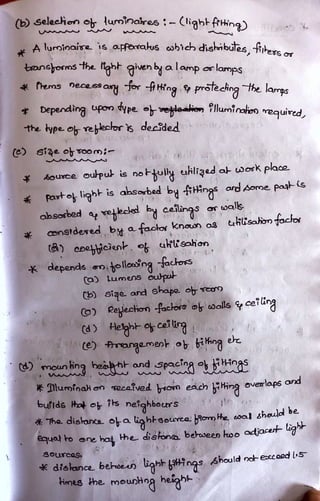 (b) Selection of luminaires :- (light fitting)
* A luminaire is apparatus which distributes, filters or
transforms the light given by a lamp or lamps
* Items necessary for fitting & protecting the lamps
* Depending upon type of illumination required,
the type of reflector is decided
(c) Size of room:-
* source output is not fully utilized at work place
* Part of light is absorbed by fittings and some part is
absorbed & reflected by ceilings or walls
* considered by a factor known as utilisation factor
(or) coefficient of utilisation
* depends on following factors
(a) Lumens output
(b) Size and shape of room
(c) Reflection factors of walls & ceiling
(d) Height of ceiling
(e) Arrangement of fitting etc
(d) mounting height and spacing of fittings
* Illumination received from each fitting overlaps and
builds that of its neighbours
* The distance of a light source from the wall should be
equal to one half the distance between two adjacent light
sources
* distance between light fittings should not exceed 1.5
times the mounting height